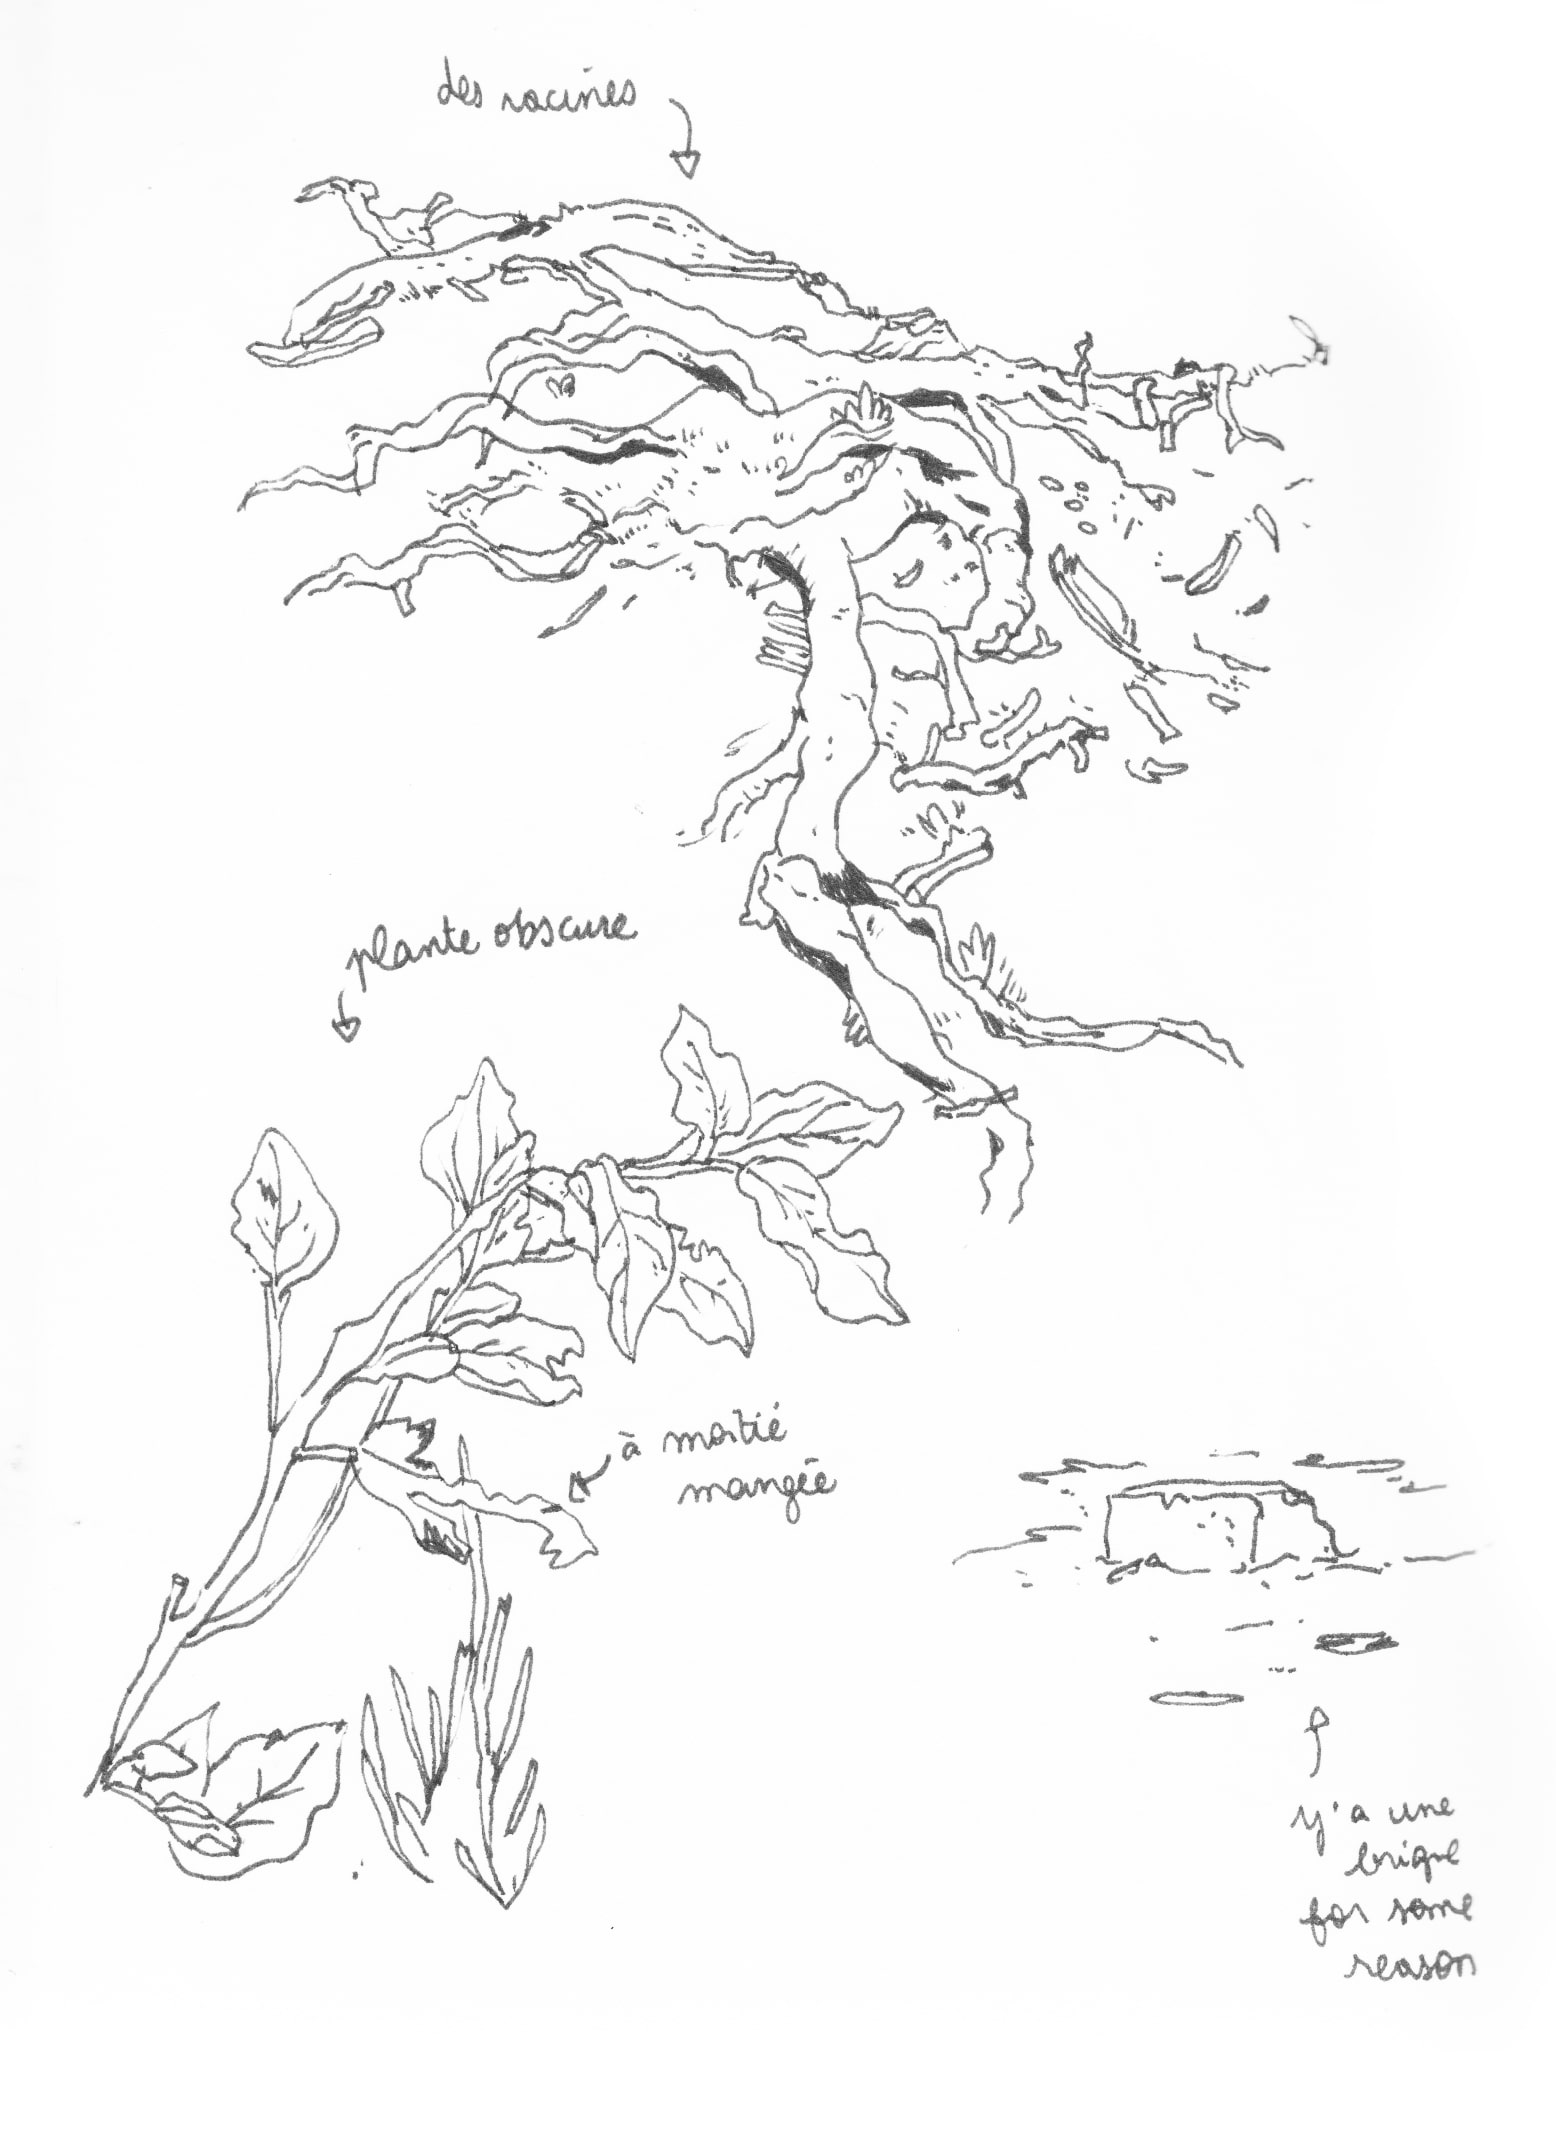 des racines
plante obscure
à moitié
mangée
y'a une
brique
for some
reason